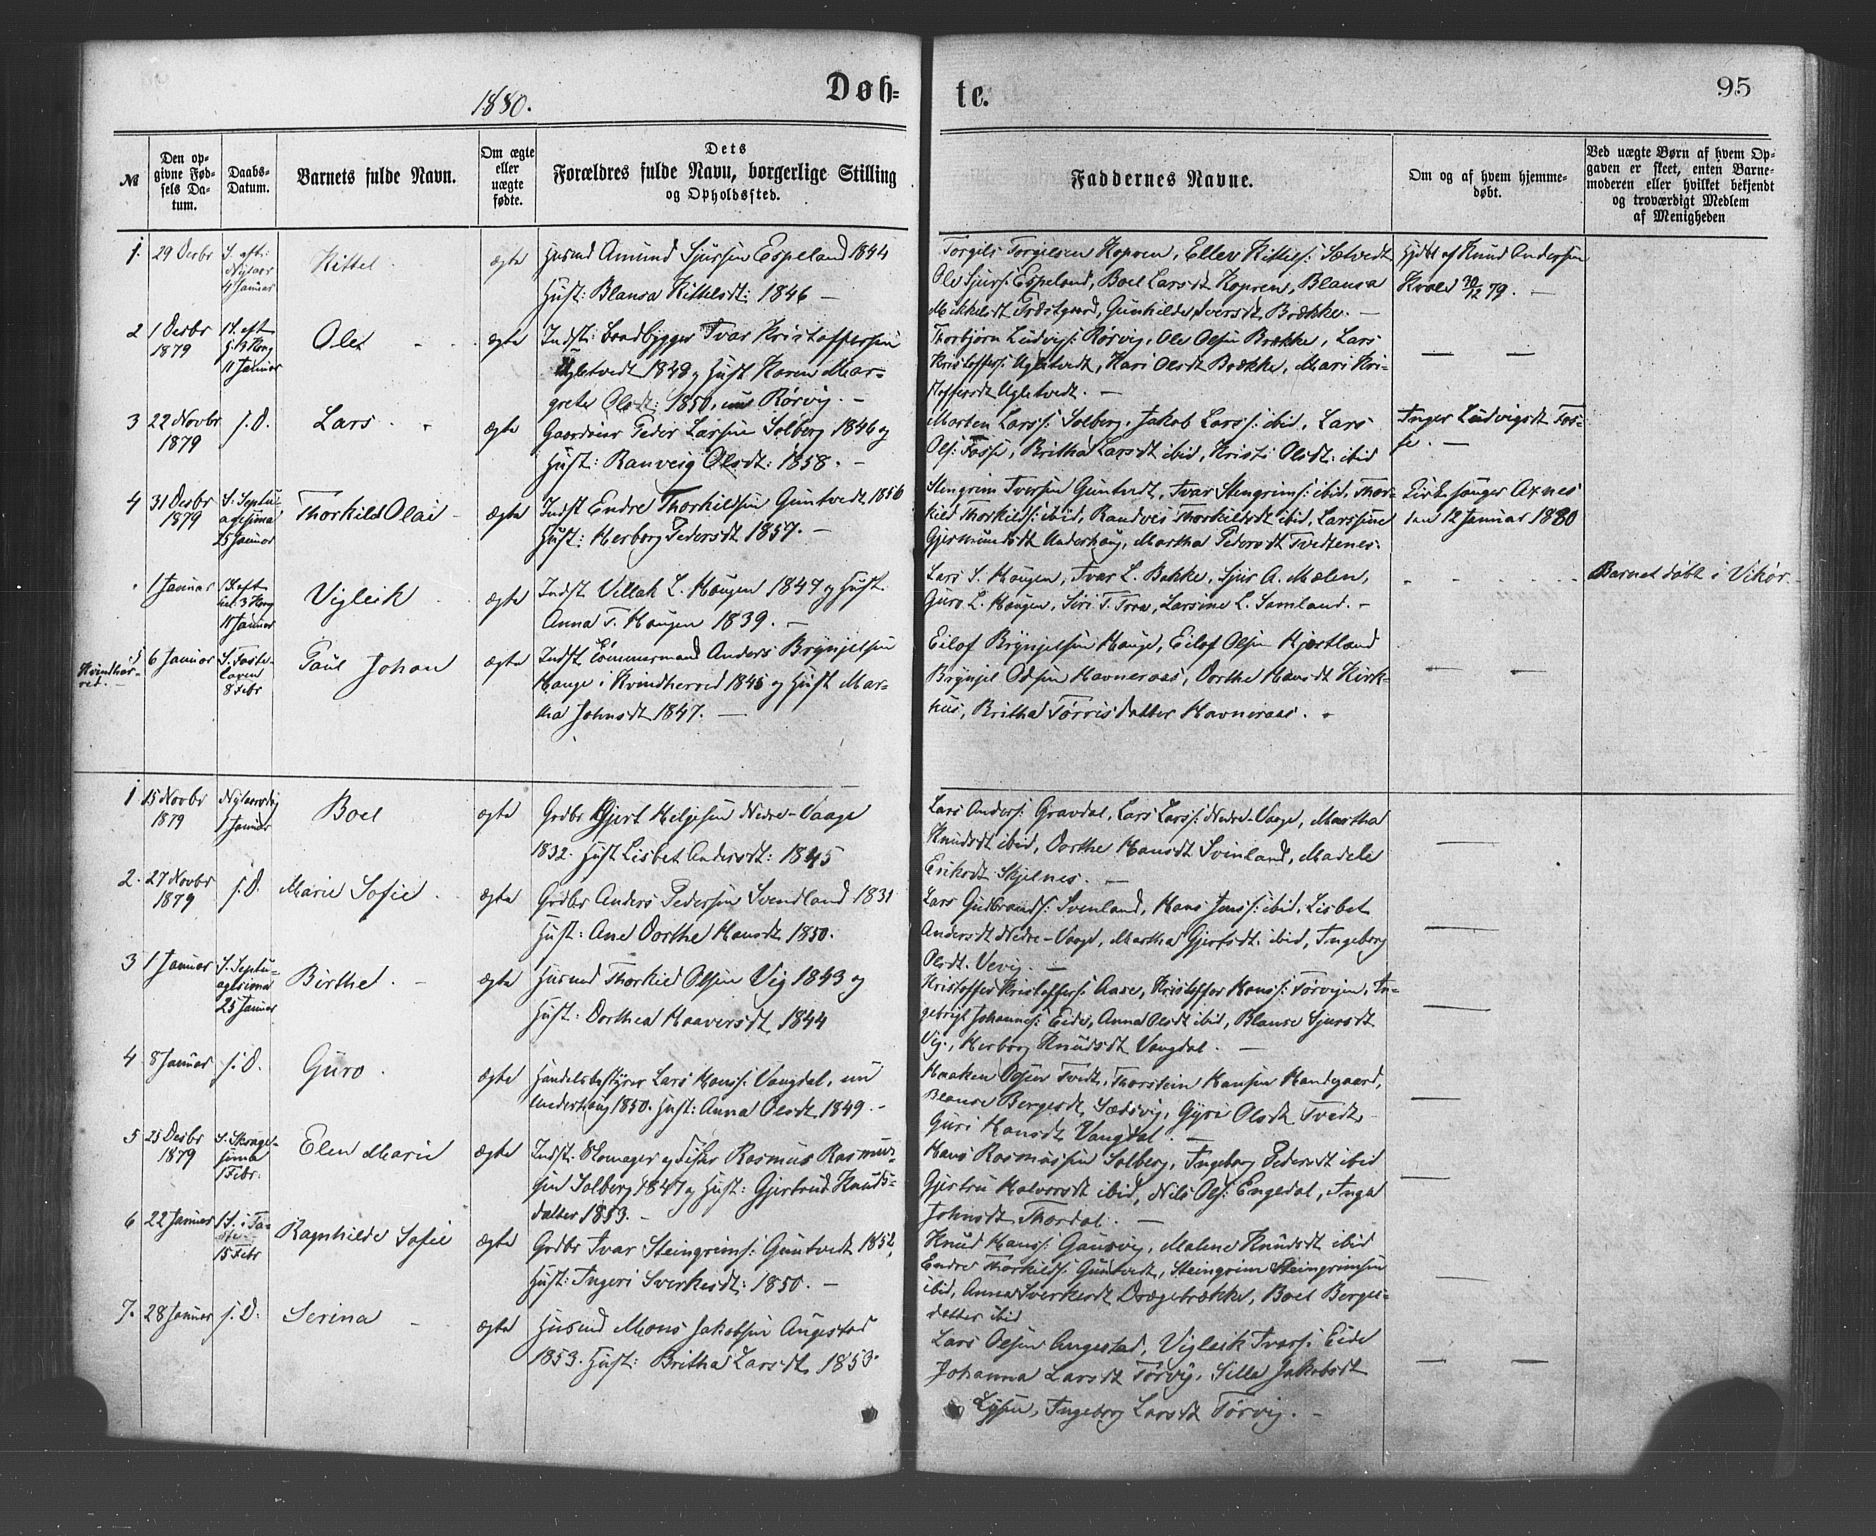 1880.
Døb-
te.
95
№
Den op-
givne Fød-
sels Da-
tum.
Daabs-
Datum.
Barnets fulde Navn.
Om ægte
eller
uægte
fødte.
Dets
Forældres fulde Navn, borgerlige Stilling
og Opholdssted.
Faddernes Navne.
Om og af hvem hjemme-
døbt.
Ved uægte Børn af hvem Op-
gaven er skeet, enten Barne-
moderen eller hvilket bekjendt
og troværdigt Medlem
af Menigheden
1.
29 Decbr
S. eft:
Nytaar
4 Januar
Kittel
ægte
Husmd Amund Sjursen Espeland 1844
Hust: Blansa Kittelsdt: 1846 —
Torgils Torgilsen Kopren, Ellev Kittels: Sætvedt
Ole Sjurs: Espeland, Boel Larsdt Kopren, Blansa
Mikkelsdt Prestgaard, Gunhilde Iversdt Brække. —
Hjdt af Knud Andersen
Kvale 30/12 79. —
2
1 Decbr
1879
1 S. eft
h. 3 Kong
11 Januar
Olea
ægte
Indst: Baadbygger Ivar Kristoffersen
Ugletvedt 1848 og Hust Karen Mar-
grete Olsdt: 1850, nu Rørvig. —
Thorbjørn Ludvigs: Rørvig, Ole Olsen Brække, Lars
Kristoffers: Ugletvedt, Kari Olsdt Brække, Mari Kri-
stoffersdt Ugletvedt. —
— —
3
22 Novbr
1879
s. D.
Lars
ægte
Gaardeier Peder Larsen Solberg 1846 og
Hust: Ranveig Olsdt: 1858. —
Morten Larss: Solberg, Jakob Larss: ibid, Lars
Ols: Fosse, Britha Larsdt ibid, Kristi Olsdt: ibid
Inger Ludvigsdt Fos-
se. —
4
31 Decbr
1879
S. Septu-
agesima
25 Januar
Thorkild Olai
ægte
Indst Endre Thorkildsen Guntvedt 1856
Hust: Herborg Pedersdt 1857. —
Stengrim Iversen Guntvedt, Ivar Stengrims: ibid, Thor-
kild Thorkilds: ibid, Randvei Thorkildsdt ibid, Larssine
Gjermundsdt Underhaug, Martha Pedersdt Tvedtenes.
Kirkesanger Axnes
den 12 Januar 1880
1 Januar
1 S. eft
hel. 3 Kong
11 Januar
Vigleik
ægte
Indst Villak L. Haugen 1847 og Hust.
Anna T. Haugen 1839. —
Lars S. Haugen, Ivar L. Bakke, Sjur A. Mælen,
Guro L. Haugen, Siri T. Toro, Larsine L. Samland. —
Barnet døbt i Vikør.
i
Kvindher-
red. —
6 Januar
S. Faste-
laven
8 Febr
Paul Johan
ægte
Indst Tømmermand Anders Brynjelsen
Hauge i Kvindherred 1845 og Hust Mar-
tha Johnsdt 1847. —
Eilof Brynjelsen Hauge, Eilof Olsen Hjortland
Brynjel Odsen Havneraas, Dorthe Hansdt Kirk-
hus, Britha Tørrisdatter Havneraas.
— —
1
15 Novbr
1879
Nytaarsdag
1 Januar
Boel
ægte
Grdbr Gjert Helgesen Nedre-Vaage
1832. Hust Lisbet Andersdt: 1845
Lars Anders: Gravdal, Lars Larss: Nedre-Vaage, Martha
Knudsdt ibid, Dorthe Hansdt Svinland, Madele
Eriksdt Skjelnes. —
—
2.
27 Novbr
1879
s. D.
Marie Sofie
ægte
Grdbr Anders Pedersen Svendland 1831
Hust: Ane Dorthe Hansdt 1850.
Lars Gudbrands: Svinland, Hans Jens: ibid, Lisbet
Andersdt Nedre-Vaage, Martha Gjertsdt. ibid, Ingeborg
Olsdt. Vevig. —
—
3
1 Januar
S. Septu-
agesima
25 Januar
Birthe
ægte
Husmd Thorkild Olsen Vig 1843 og
Hust: Dorthea Haaversdt 1844
Kristoffer Kristoffers: Aase, Kristoffer Hans: Tørvigen, In-
gebrigt Johannes: Eide, Anna Olsdt ibid, Blanse Sjursdt
Vig., Herborg Knudsdt Vangdal. —
—
4
8 Januar
s. D.
Guro
ægte
Handelsbestyrer Lars Hans: Vangdal, nu
Underhaug 1850. Hust: Anna Olsdt 1849. —
Haaken Olsen Tvedt, Thorstein Hansen Handegaard,
Blanse Bergesdt Sædsvig, Gyri Olsdt Tvedt
Guri Hansdt Vangdal. —
—
5
23 Decbr
1879
S. Sexage-
sima
1 Febr.
Elen Marie
ægte
Indst. Skomager og Fisker Rasmus Rasmus-
sen Solberg 1847 og Hust: Gjertrud Knuds-
datter 1853. —
Hans Rasmussen Solberg, Ingeborg Pedersdt ibid
Gjertru Halvorsdt ibid, Nils Ols: Engedal, Inga
Johnsdt Thordal. —
—
6
22 Januar
1 S. i Fa-
ste
15 Febr
Ragnhilde Sofie
ægte
Grdbr Ivar Steingrims: Guntvedt 1852,
Hust: Ingeri Sverkesdt: 1850. —
Knud Hans: Gausvig, Malene Knudsdt ibid
Endre Thorkilds: Guntvedt, Steingrim Steingrimsen
ibid, Anna Sverkesdt Drægebrække, Boel Berges-
datter ibid
—
7.
28 Januar
s. D.
Serina
ægte
Husmd Mons Jakobsen Augestad
1853. Hust: Britha Larsdt, 1853.
Lars Olsen Augestad, Vigleik Ivars: Eide
Johanna Larsdt Tørvig, Silla Jakobsdt
Lysen, Ingeborg Larsdt Tørvig. —
— —